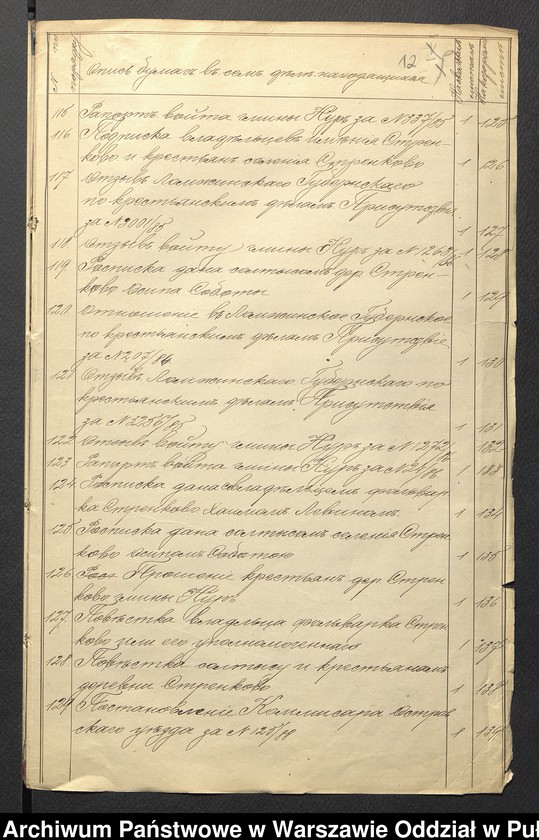 № по порядку
Опись бумагъ въ семъ дѣлѣ находящихся
12
115 Рапортъ войта гмины Нуръ за №337/85 1 125
116 Подписка владѣльцевъ имѣнія Стрен-
ково и крестьянъ селенія Стренково 1 126
117 Отзывъ Ломжинскаго Губернскаго
по крестьянскимъ дѣламъ Присутствія
за №3001/85 1 127
118 Отзывъ войту гмины Нуръ за №1263/86 1 128
119 Росписка дана солтысомъ дер Стрен-
ково Осипа Соботы 1 129
120 Отношеніе въ Ломжинское Губернское
по крестьянскимъ дѣламъ Присутствіе
за №207/86 1 130
121 Отзывъ Ломжинскаго Губернскаго по
крестьянскимъ дѣламъ Присутствія
за №2256/85 1 131
122 Отзывъ войту гмины Нуръ за №1272/86 1 132
123 Рапортъ войта гмины Нуръ за №21/86 1 133
124 Росписка дана владѣльцемъ фольвар-
ка Стренково Хаимомъ Левиномъ 1 134
125 Росписка дана солтысомъ селенія Стрен-
ково Осипомъ Соботою 1 135
126 Прошеніе крестьянъ дер Стрен
ково гмины Нуръ 1 136
127 Повѣстка владѣльца фольварка Стрен
ково или его уполномоченнаго 1 137
128 Повѣстка солтысу и крестьянамъ
деревни Стренково 1 138
129 Постановленіе Коммисара Остров
скаго уѣзда за №125/88 1 139
Archiwum Państwowe w Warszawie Oddział w Puł